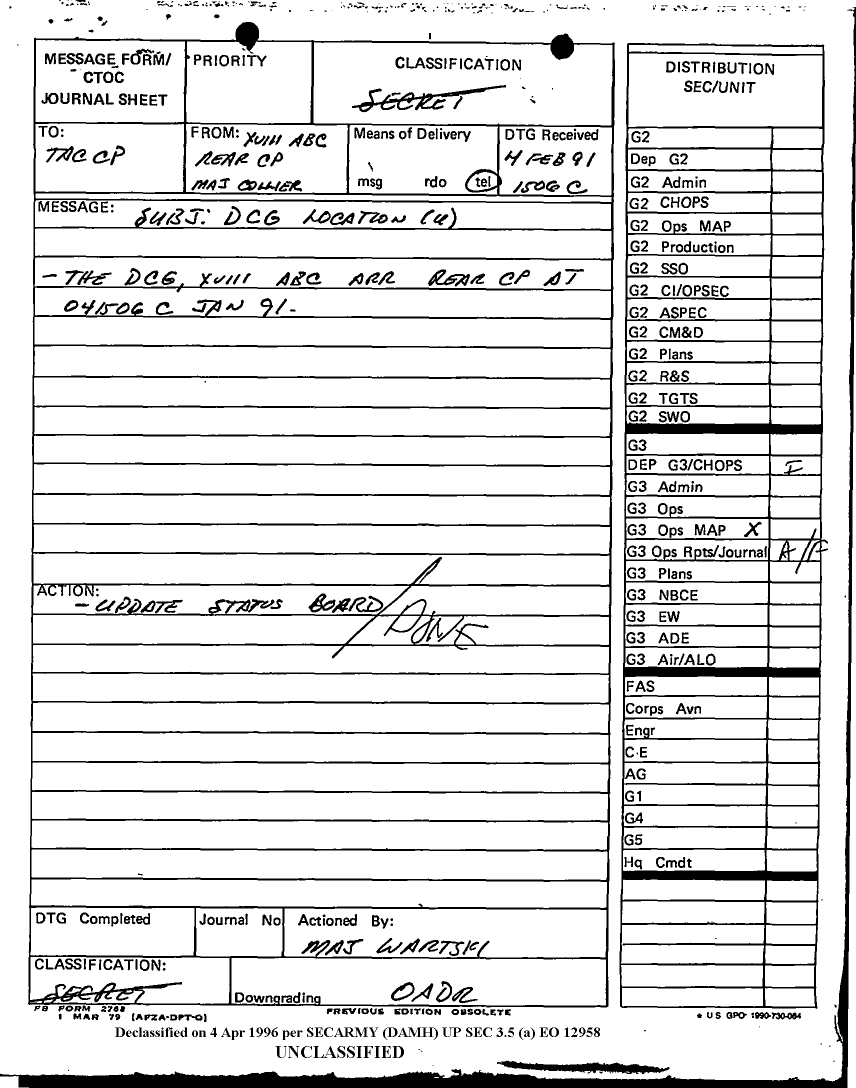 MESSAGE FORM/
CTOC
JOURNAL SHEET
PRIORITY
CLASSIFICATION
SECRET
TO:
TAC CP
FROM: XVIII ABC
REAR CP
MAJ COLLIER
Means of Delivery
msg rdo tel
DTG Received
4 FEB 91
1506 C
MESSAGE:
SUBJ: DCG LOCATION (U)
- THE DCG, XVIII ABC ARR REAR CP AT
041506 C JAN 91.
ACTION:
- UPDATE STATUS BOARD / DONE
DTG Completed
Journal No
Actioned By:
MAJ WARTSKI
CLASSIFICATION:
SECRET
Downgrading OADR
FB FORM 2768
1 MAR 79 (AFZA-DPT-O)
PREVIOUS EDITION OBSOLETE
DISTRIBUTION
SEC/UNIT
G2
Dep G2
G2 Admin
G2 CHOPS
G2 Ops MAP
G2 Production
G2 SSO
G2 CI/OPSEC
G2 ASPEC
G2 CM&D
G2 Plans
G2 R&S
G2 TGTS
G2 SWO
G3
DEP G3/CHOPS I
G3 Admin
G3 Ops
G3 Ops MAP X
G3 Ops Rpts/Journal A/F
G3 Plans
G3 NBCE
G3 EW
G3 ADE
G3 Air/ALO
FAS
Corps Avn
Engr
C-E
AG
G1
G4
G5
Hq Cmdt
* U S GPO 1990-730-084
Declassified on 4 Apr 1996 per SECARMY (DAMH) UP SEC 3.5 (a) EO 12958
UNCLASSIFIED